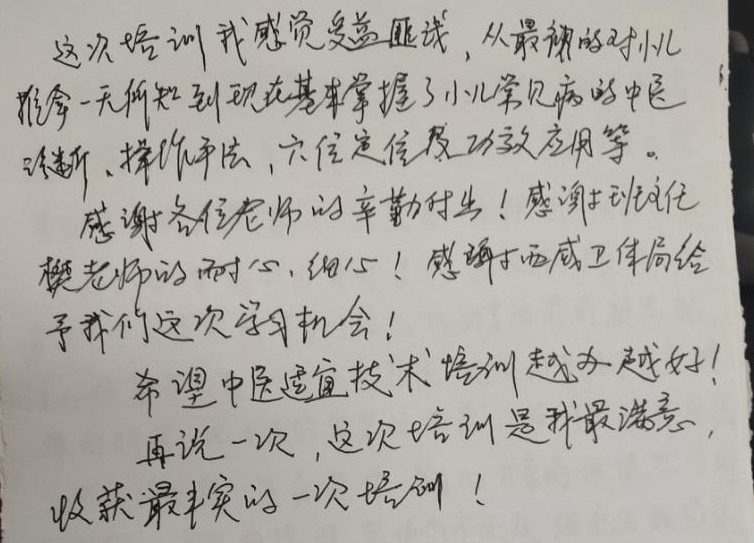 这次培训我感觉受益匪浅，从最初的对小儿
推拿一无所知到现在基本掌握了小儿常见病的中医
诊断、操作手法，穴位定位及功效应用等。
感谢各位老师的辛勤付出！感谢班主任
樊老师的耐心、细心！感谢西咸卫体局给
予我们这次学习机会！
希望中医适宜技术培训越办越好！
再说一次，这次培训是我最满意，
收获最丰实的一次培训！